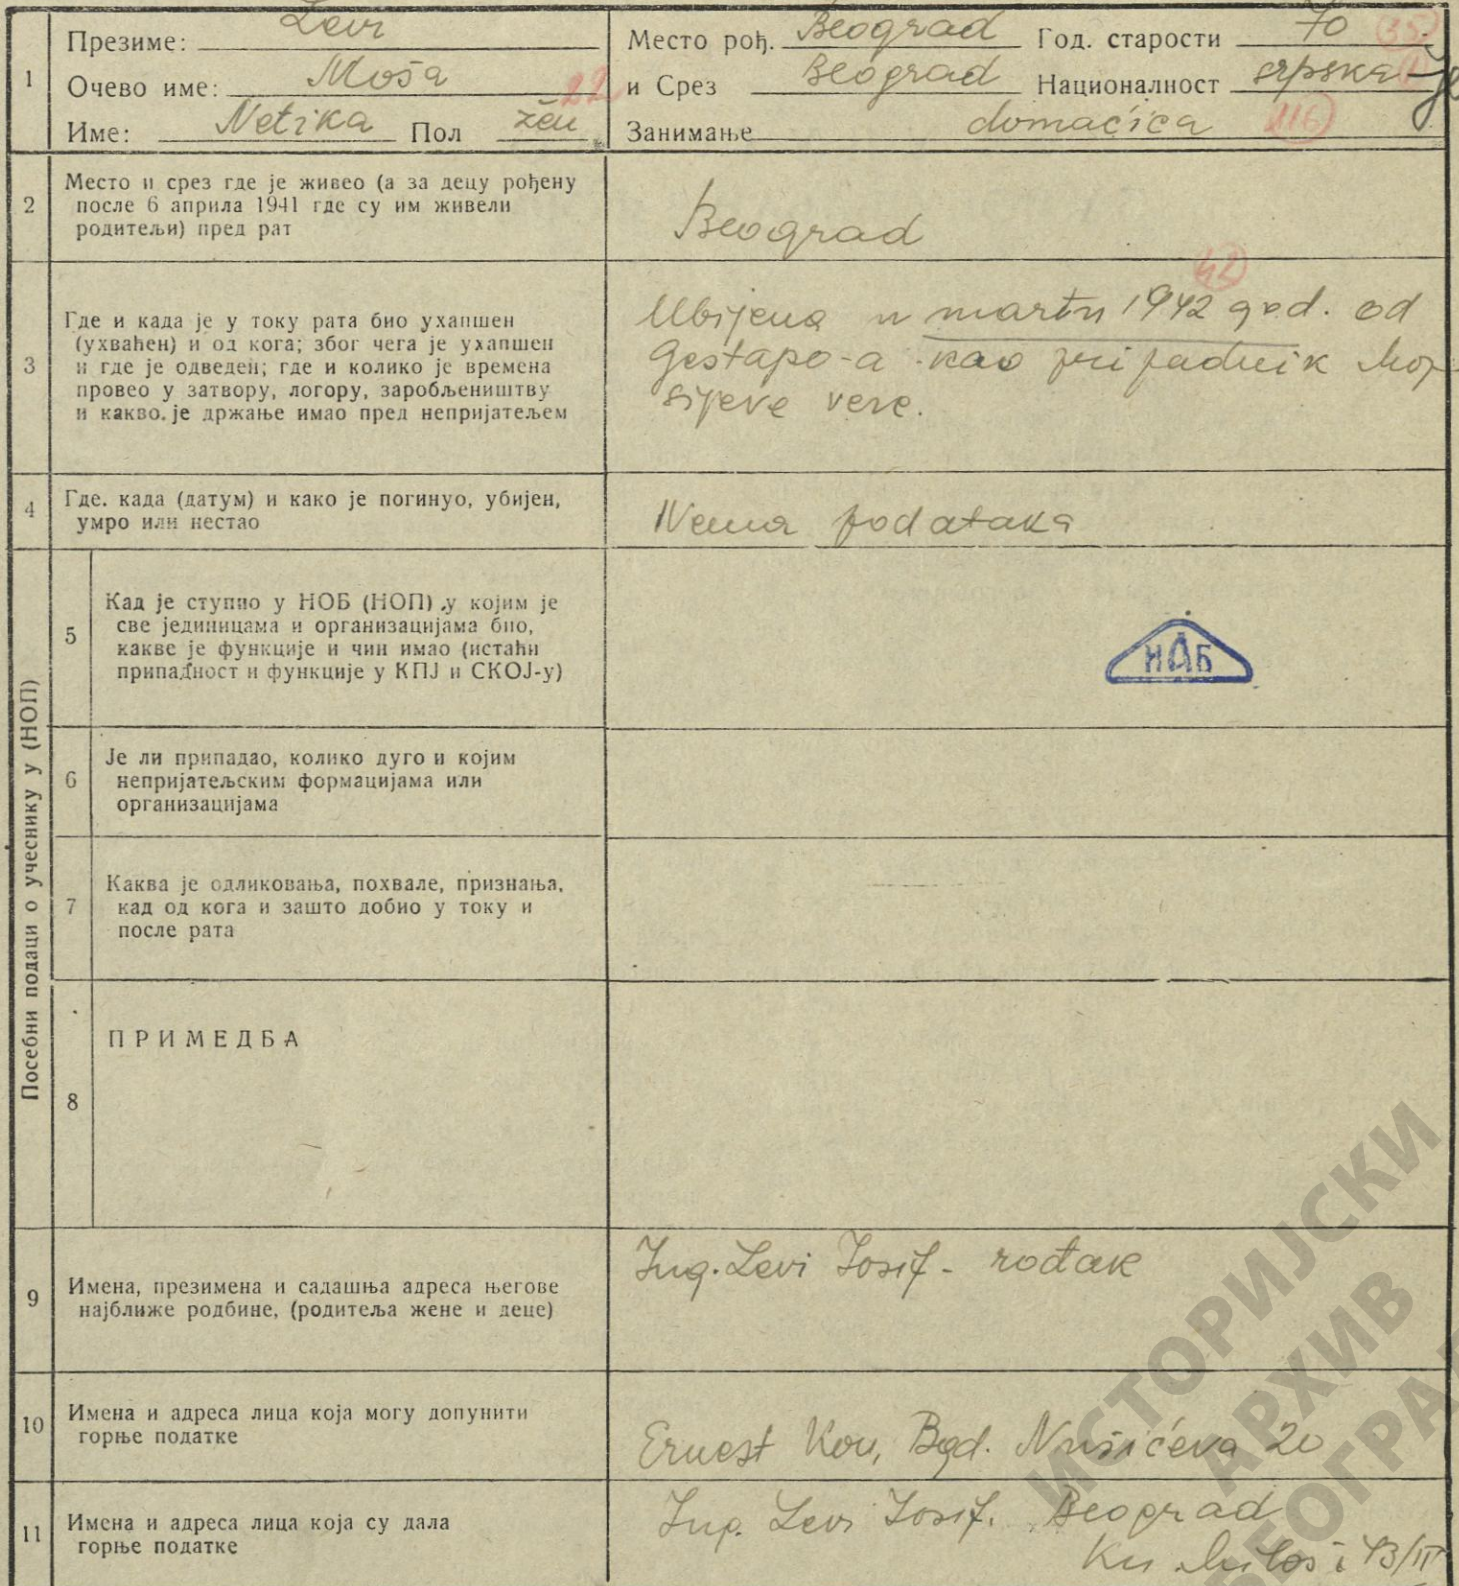 1 Презиме: Levi Место рођ. Beograd Год. старости 70 (35)
Очево име: Moša 22 и Срез Beograd Националност srpska
Име: Netika Пол žen Занимање domaćica 116)
2 Место и срез где је живео (а за децу рођену
после 6 априла 1941 где су им живели
родитељи) пред рат
Beograd
42
3 Где и када је у току рата био ухапшен
(ухваћен) и од кога; због чега је ухапшен
и где је одведен; где и колико је времена
провео у затвору, логору, заробљеништву
и какво. је држање имао пред непријатељем
Ubijena u martu 1942 god. od
Gestapo-a kao pripadnik Moj-
sijeve vere.
4 Где. када (датум) и како је погинуо, убијен,
умро или нестао
Nema podataka
Посебни подаци о учеснику у (НОП)
5 Кад је ступио у НОБ (НОП) ,у којим је
све јединицама и организацијама био,
какве је функције и чин имао (истаћи
припадност и функције у КПЈ и СКОЈ-у)
ИАБ
6 Је ли припадао, колико дуго и којим
непријатељским формацијама или
организацијама
7 Каква је одликовања, похвале, признања,
кад од кога и зашто добио у току и
после рата
8 ПРИМЕДБА
9 Имена, презимена и садашња адреса његове
најближе родбине, (родитеља жене и деце)
Ing. Levi Josif - rođak
10 Имена и адреса лица која могу допунити
горње податке
Ernest Kon, Bgd. Nušićeva 20
11 Имена и адреса лица која су дала
горње податке
Ing. Levi Josif. Beograd
Kn Miloša 13/II
ИСТОРИЈСКИ
АРХИВ
БЕОГРА